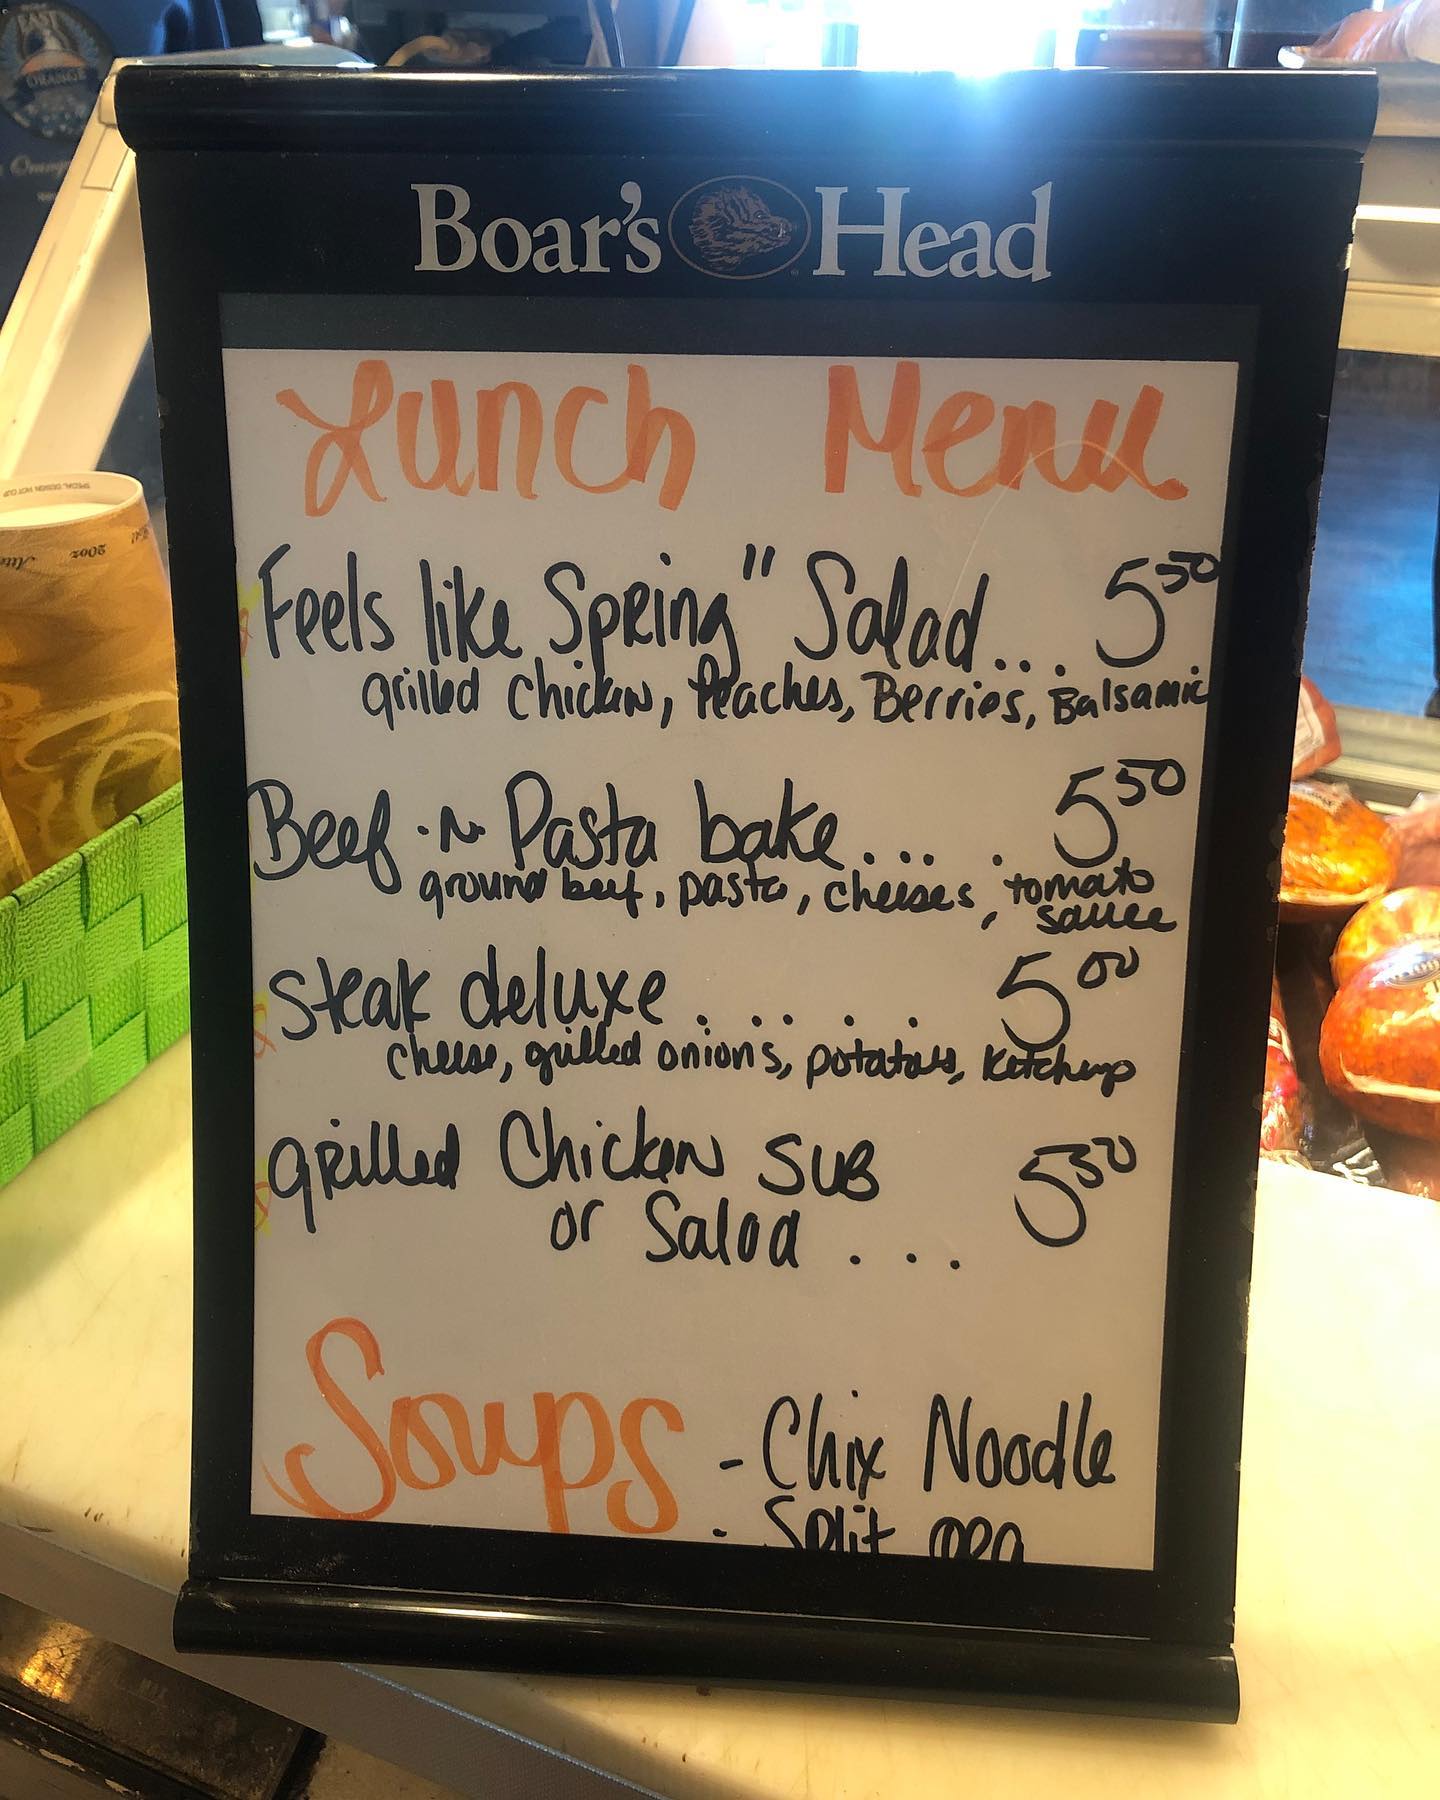 EAST
ORANGE
SPECIAL DESIGN HOT CUP
20oz
Boar's Head
Lunch Menu
Feels like Spring" Salad... 5.50
grilled chicken, Peaches, Berries, Balsamic
Beef -n- Pasta bake.... 5.50
ground beef, pasta, cheeses, tomato
sauce
Steak deluxe ..... 5.00
cheese, grilled onions, potatoes, ketchup
grilled Chicken SUB 5.50
or Salad ...
Soups - Chix Noodle
- Split pea